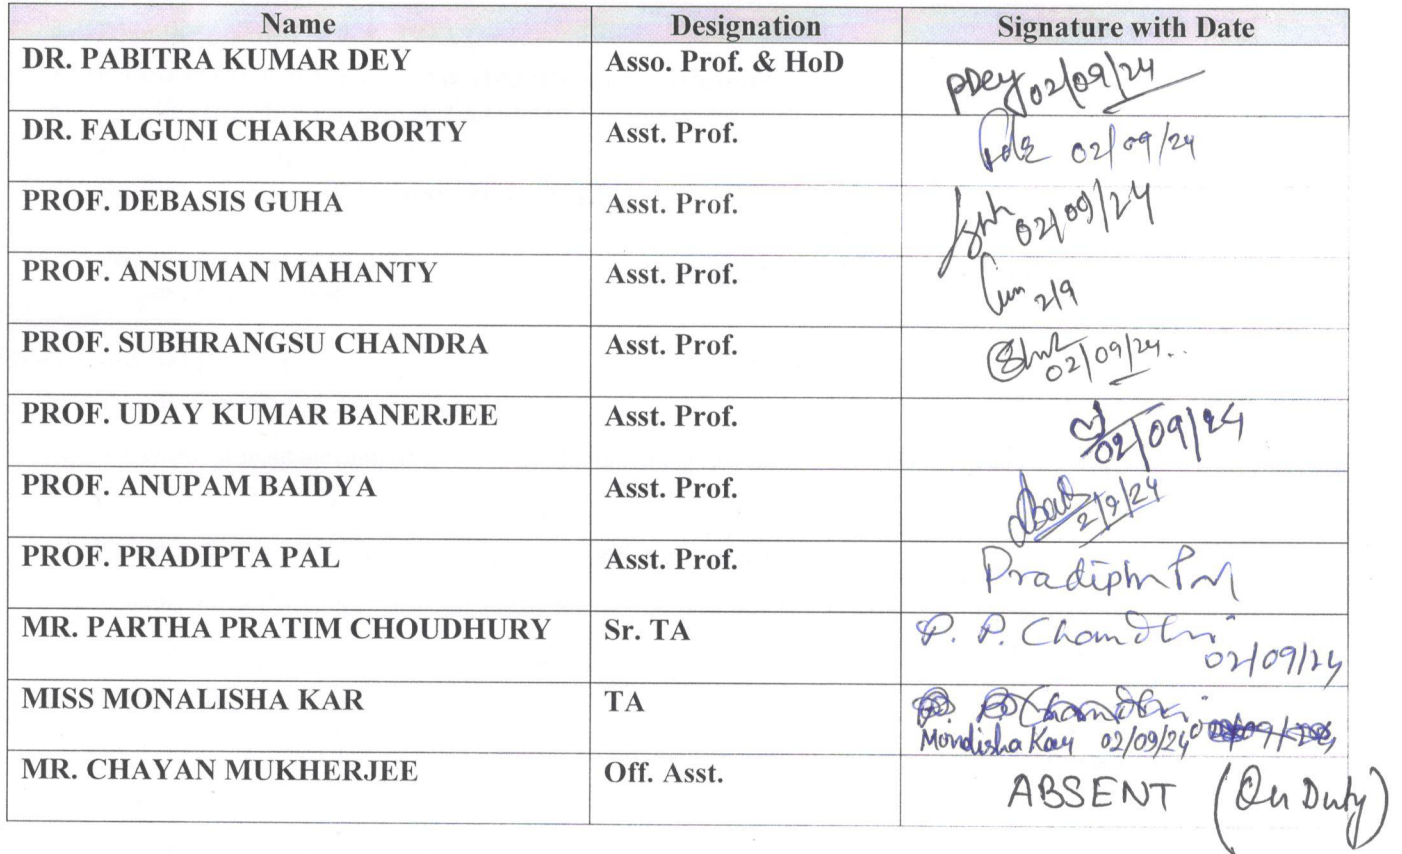 Name Designation Signature with Date
DR. PABITRA KUMAR DEY Asso. Prof. & HoD PDey 02/09/24
DR. FALGUNI CHAKRABORTY Asst. Prof. 02/09/24
PROF. DEBASIS GUHA Asst. Prof. 02/09/24
PROF. ANSUMAN MAHANTY Asst. Prof. 2/9
PROF. SUBHRANGSU CHANDRA Asst. Prof. 02/09/24..
PROF. UDAY KUMAR BANERJEE Asst. Prof. 02/09/24
PROF. ANUPAM BAIDYA Asst. Prof. 2/9/24
PROF. PRADIPTA PAL Asst. Prof. Pradipta Pal
MR. PARTHA PRATIM CHOUDHURY Sr. TA P. P. Choudhuri
02/09/24
MISS MONALISHA KAR TA
Monalisha Kar 02/09/24
MR. CHAYAN MUKHERJEE Off. Asst. ABSENT (On Duty)